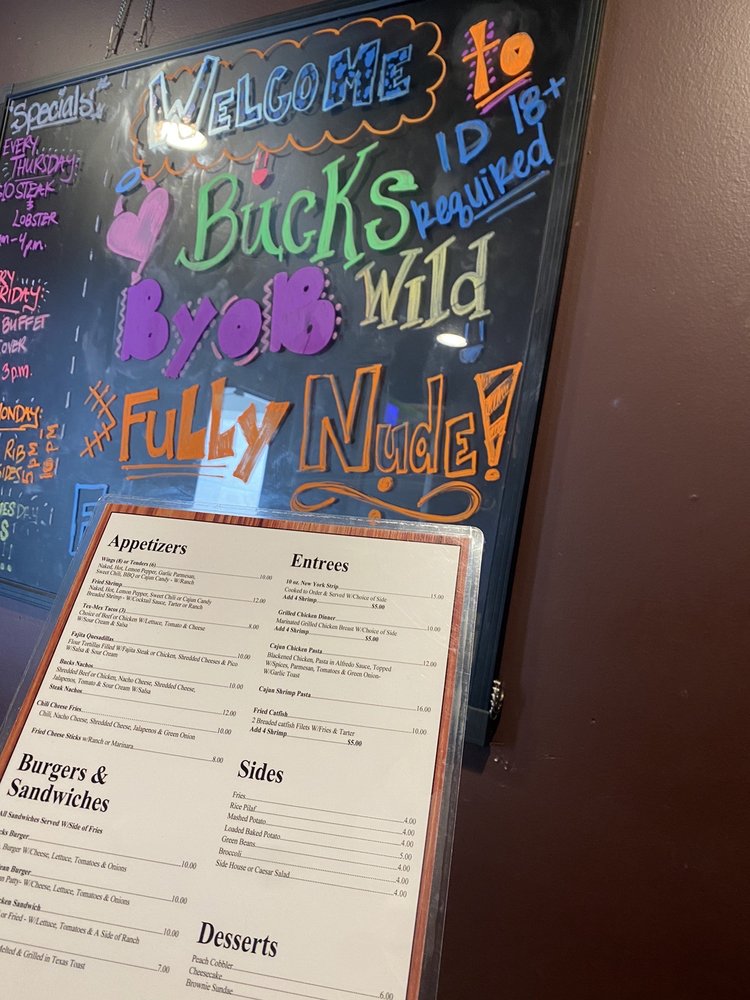 Specials!
EVERY
THURSDAY
STEAK
&
LOBSTER
-4pm.
BUFFET
3 p.m.
RIB
WELCOME to
BUCKS
WILD
ID 18+
Required
BYOB
FULLY NUDE!
Appetizers
Wings (8) or Tenders (6)
Naked, Hot, Lemon Pepper, Garlic Parmesan,
Sweet Chili, BBQ or Cajun Candy - W/Ranch 10.00
Fried Shrimp
Naked, Hot, Lemon Pepper, Sweet Chili or Cajun Candy 12.00
Breaded Shrimp - W/Cocktail Sauce, Tarter or Ranch
Tex-Mex Tacos (3)
Choice of Beef or Chicken W/Lettuce, Tomato & Cheese 8.00
W/Sour Cream & Salsa
Fajita Quesadillas 10.00
Flour Tortillas Filled W/Fajita Steak or Chicken, Shredded Cheeses & Pico
W/Salsa & Sour Cream
Bucks Nachos
Shredded Beef or Chicken, Nacho Cheese, Shredded Cheese, 10.00
Jalapenos, Tomato & Sour Cream W/Salsa
Steak Nachos 12.00
Chili Cheese Fries
Chili, Nacho Cheese, Shredded Cheese, Jalapenos & Green Onion 10.00
Fried Cheese Sticks w/Ranch or Marinara 8.00
Burgers &
Sandwiches
All Sandwiches Served W/Side of Fries
Burger 10.00
Burger W/Cheese, Lettuce, Tomatoes & Onions
Burger 10.00
Patty- W/Cheese, Lettuce, Tomatoes & Onions
Sandwich 10.00
or Fried - W/Lettuce, Tomatoes & A Side of Ranch
Melted & Grilled in Texas Toast 7.00
Entrees
10 oz. New York Strip 15.00
Cooked to Order & Served W/Choice of Side
Add 4 Shrimp $5.00
Grilled Chicken Dinner 10.00
Marinated Grilled Chicken Breast W/Choice of Side
Add 4 Shrimp $5.00
Cajun Chicken Pasta 12.00
Blackened Chicken, Pasta in Alfredo Sauce, Topped
W/Spices, Parmesan, Tomatoes & Green Onion-
W/Garlic Toast
Cajun Shrimp Pasta 16.00
Fried Catfish 10.00
2 Breaded catfish Filets W/Fries & Tarter
Add 4 Shrimp $5.00
Sides
Fries 4.00
Rice Pilaf 4.00
Mashed Potato 4.00
Loaded Baked Potato 5.00
Green Beans 4.00
Broccoli 4.00
Side House or Caesar Salad 4.00
Desserts
Peach Cobbler 6.00
Cheesecake
Brownie Sundae